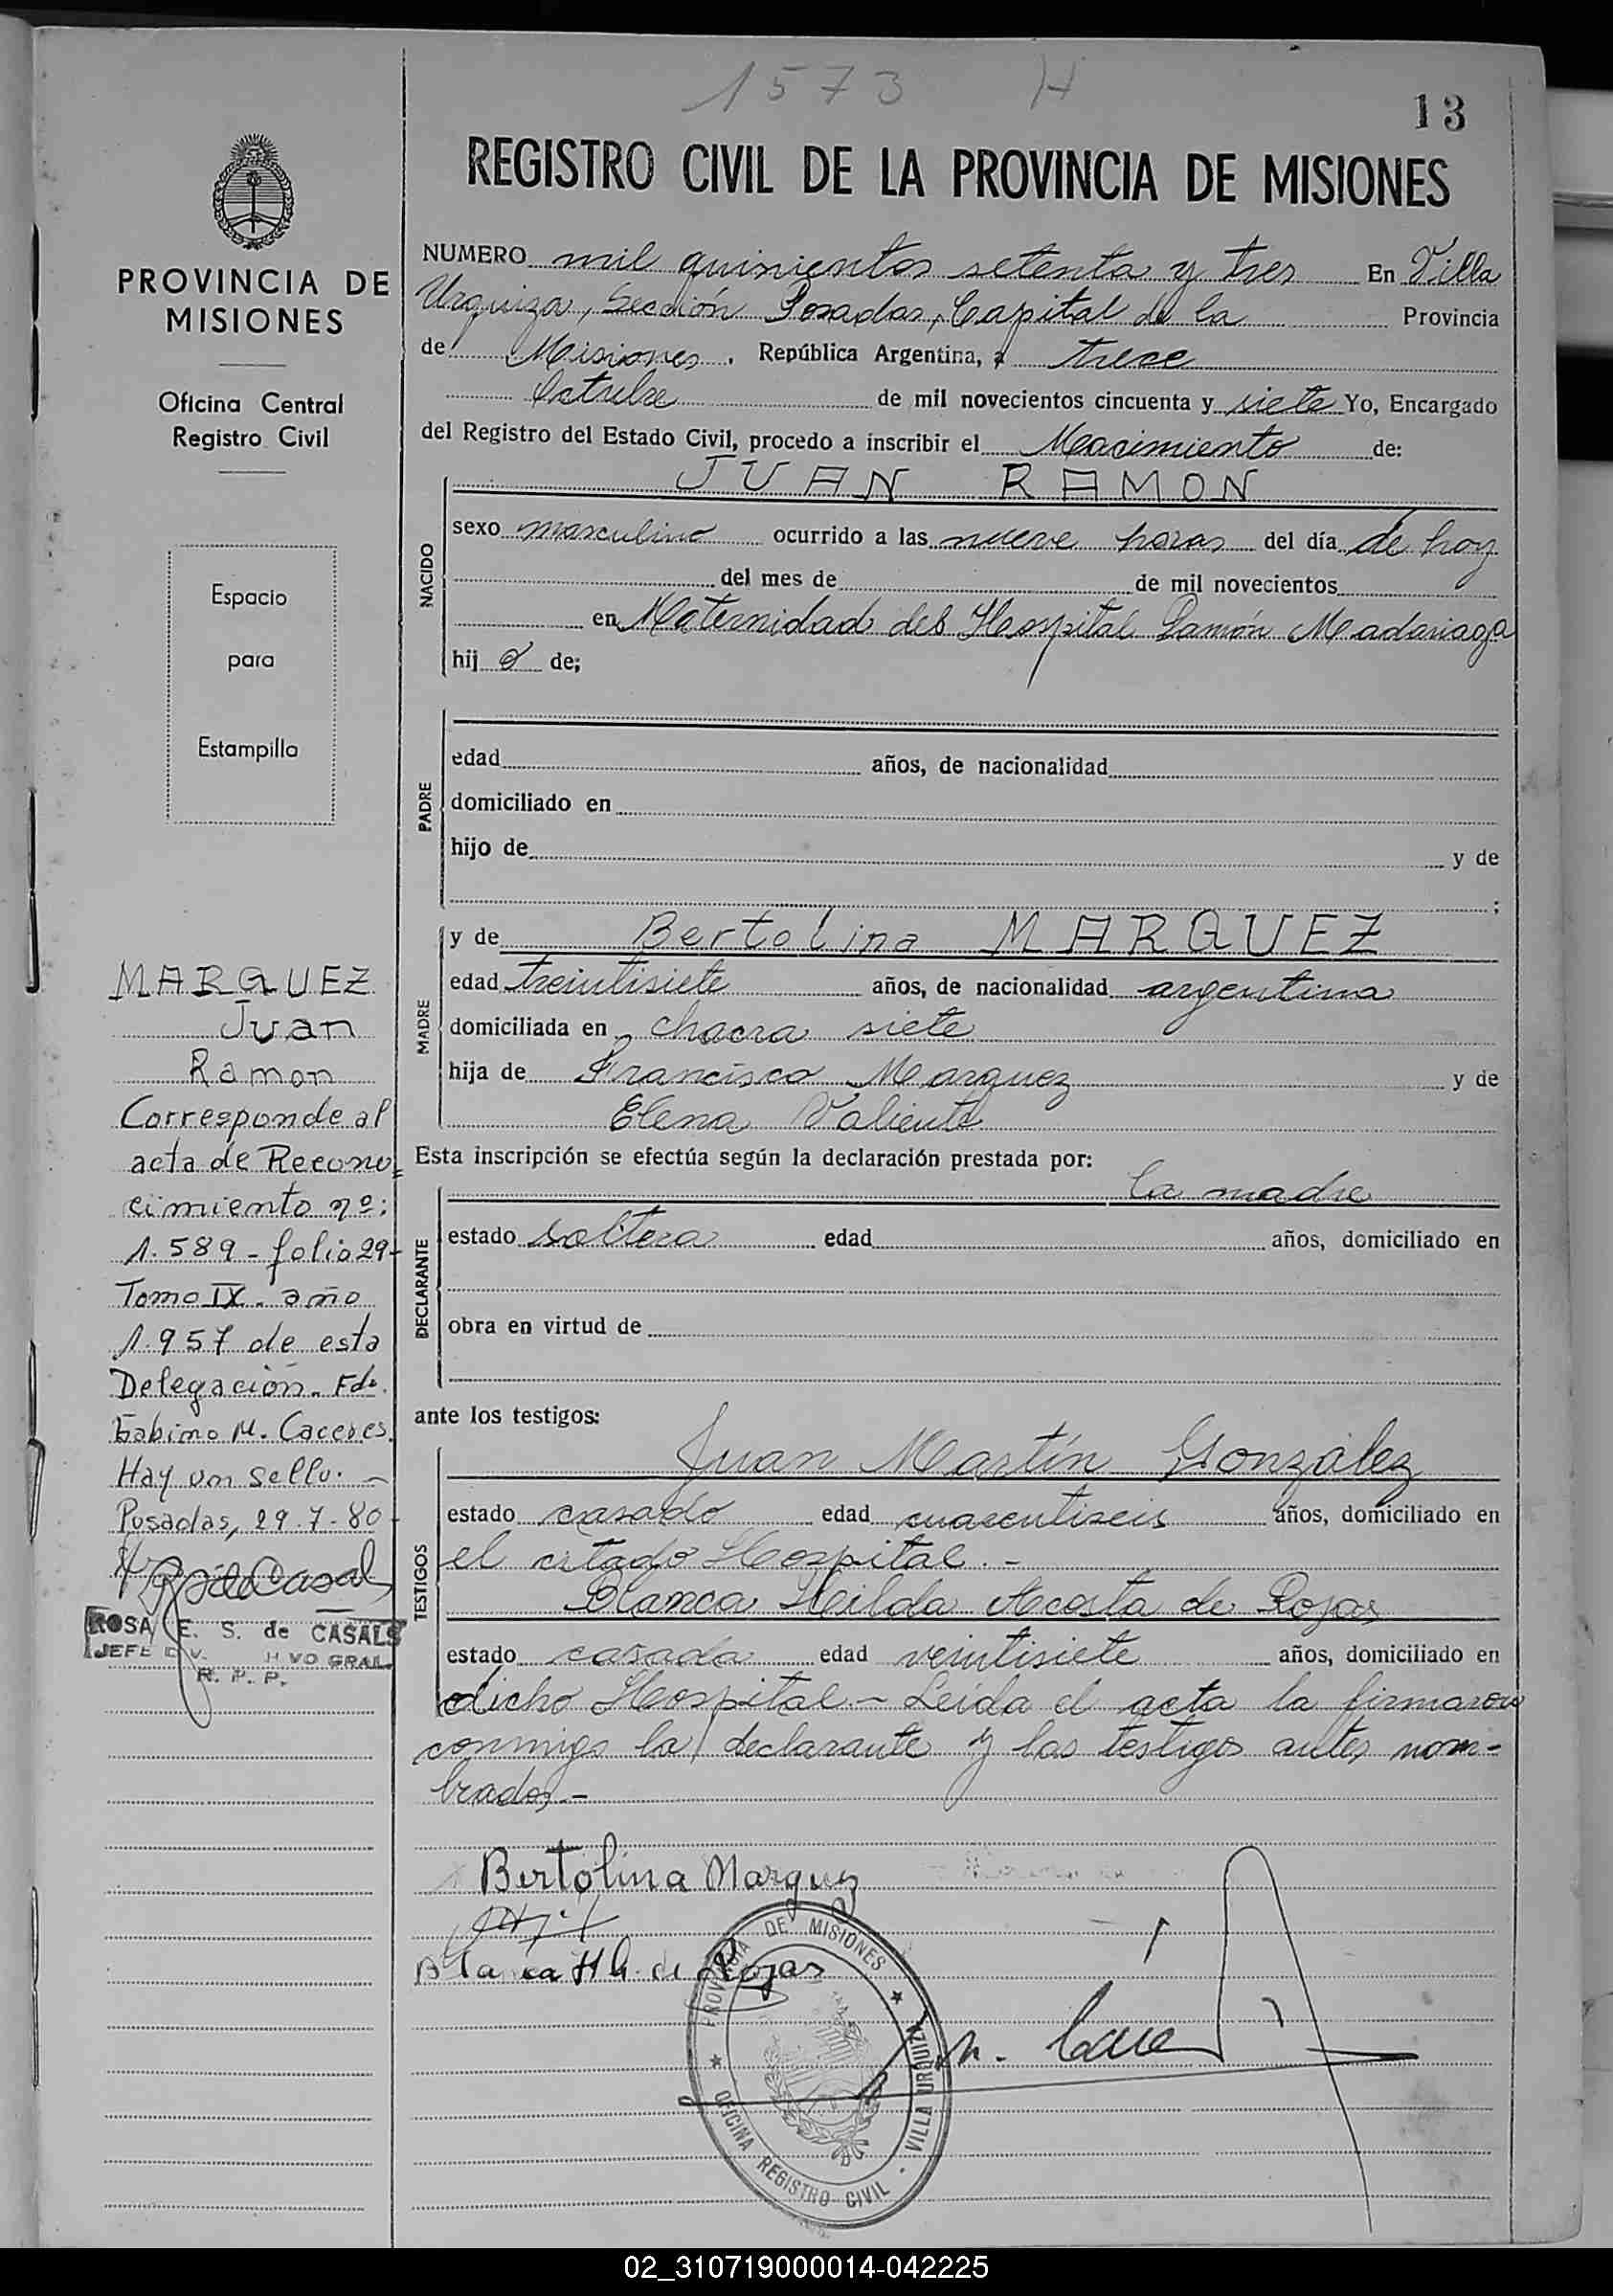 1573 H
13
REGISTRO CIVIL DE LA PROVINCIA DE MISIONES
PROVINCIA DE
MISIONES
Oficina Central
Registro Civil
Espacio
para
Estampilla
MARQUEZ
Juan
Ramon
Corresponde al
acta de Recono=
cimiento nº:
1.589 - folio 29-
Tomo IX. año
1.957 de esta
Delegación. Fdo.
Gabino M. Caceres.
Hay un sello. -
Posadas, 29.7.80-
ROSA E. S. de CASALS
JEFE DIV. GRAL.
R. P. P.
NUMERO mil quinientos setenta y tres En Villa
Urquiza, Sección Posadas, Capital de la Provincia
de Misiones. República Argentina, a trece
Octubre de mil novecientos cincuenta y siete Yo, Encargado
del Registro del Estado Civil, procedo a inscribir el Nacimiento de:
NACIDO
JUAN RAMON
sexo masculino ocurrido a las nueve horas del día de hoy
del mes de de mil novecientos
en Maternidad del Hospital Ramón Madariaga
hijo de;
PADRE
edad años, de nacionalidad
domiciliado en
hijo de y de
;
MADRE
y de Bertolina MARQUEZ
edad treintisiete años, de nacionalidad argentina
domiciliada en chacra siete
hija de Francisco Marquez y de
Elena Valiente
Esta inscripción se efectúa según la declaración prestada por:
DECLARANTE
la madre
estado soltera edad años, domiciliado en
obra en virtud de
ante los testigos:
TESTIGOS
Juan Martín González
estado casado edad cuarentiseis años, domiciliado en
el citado Hospital. -
Blanca Hilda Acosta de Rojas
estado casada edad veintisiete años, domiciliado en
dicho Hospital - Leída el acta la firmaron
conmigo la declarante y los testigos antes nom-
brados. -
Bertolina Marquez
Blanca H A. de Rojas
PROVINCIA DE MISIONES
VILLA URQUIZA
OFICINA REGISTRO CIVIL
02_310719000014-042225